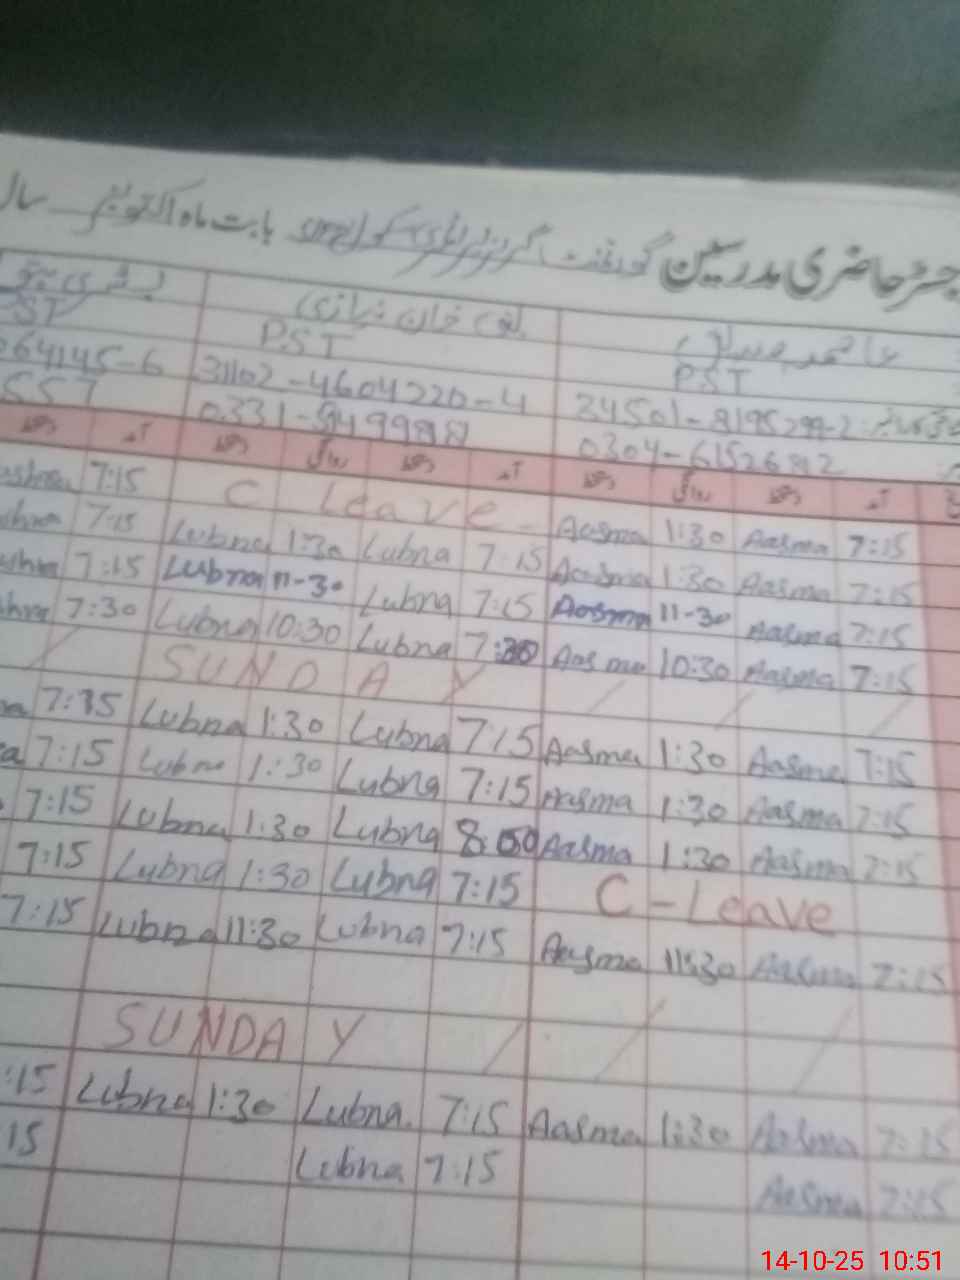 رجسٹر حاضری مدرسین گورنمنٹ گرلز پرائمری سکول بابت ماہ اکتوبر سال
PST
PST
ST
34501-8195299-2
31102-4604220-4
64145-6
0304-6152682
0331-9499988
557
آمد دستخط روانگی دستخط آمد دستخط روانگی دستخط آمد دستخط
7:15 Aasma 1:30 Aasma C Leave 7:15
7:15 Aasma 1:30 Aasma 7:15 Lubna 1:30 Lubna 7:15
7:15 Aasma 11-30 Aasma 7:15 Lubna 11-30 Lubna 7:15
7:15 Aasma 10:30 Aasma 7:30 Lubna 10:30 Lubna 7:30
SUNDAY
7:15 Aasma 1:30 Aasma 7:15 Lubna 1:30 Lubna 7:35
7:15 Aasma 1:30 Aasma 7:15 Lubna 1:30 Lubna 7:15
7:15 Aasma 1:30 Aasma 8:00 Lubna 1:30 Lubna 7:15
C-Leave 7:15 Lubna 1:30 Lubna 7:15
7:15 Aasma 11:30 Aasma 7:15 Lubna 11:30 Lubna 7:15
SUNDAY
7:15 Aasma 1:30 Aasma 7:15 Lubna 1:30 Lubna :15
7:15 Aasma 7:15 Lubna 15
14-10-25 10:51